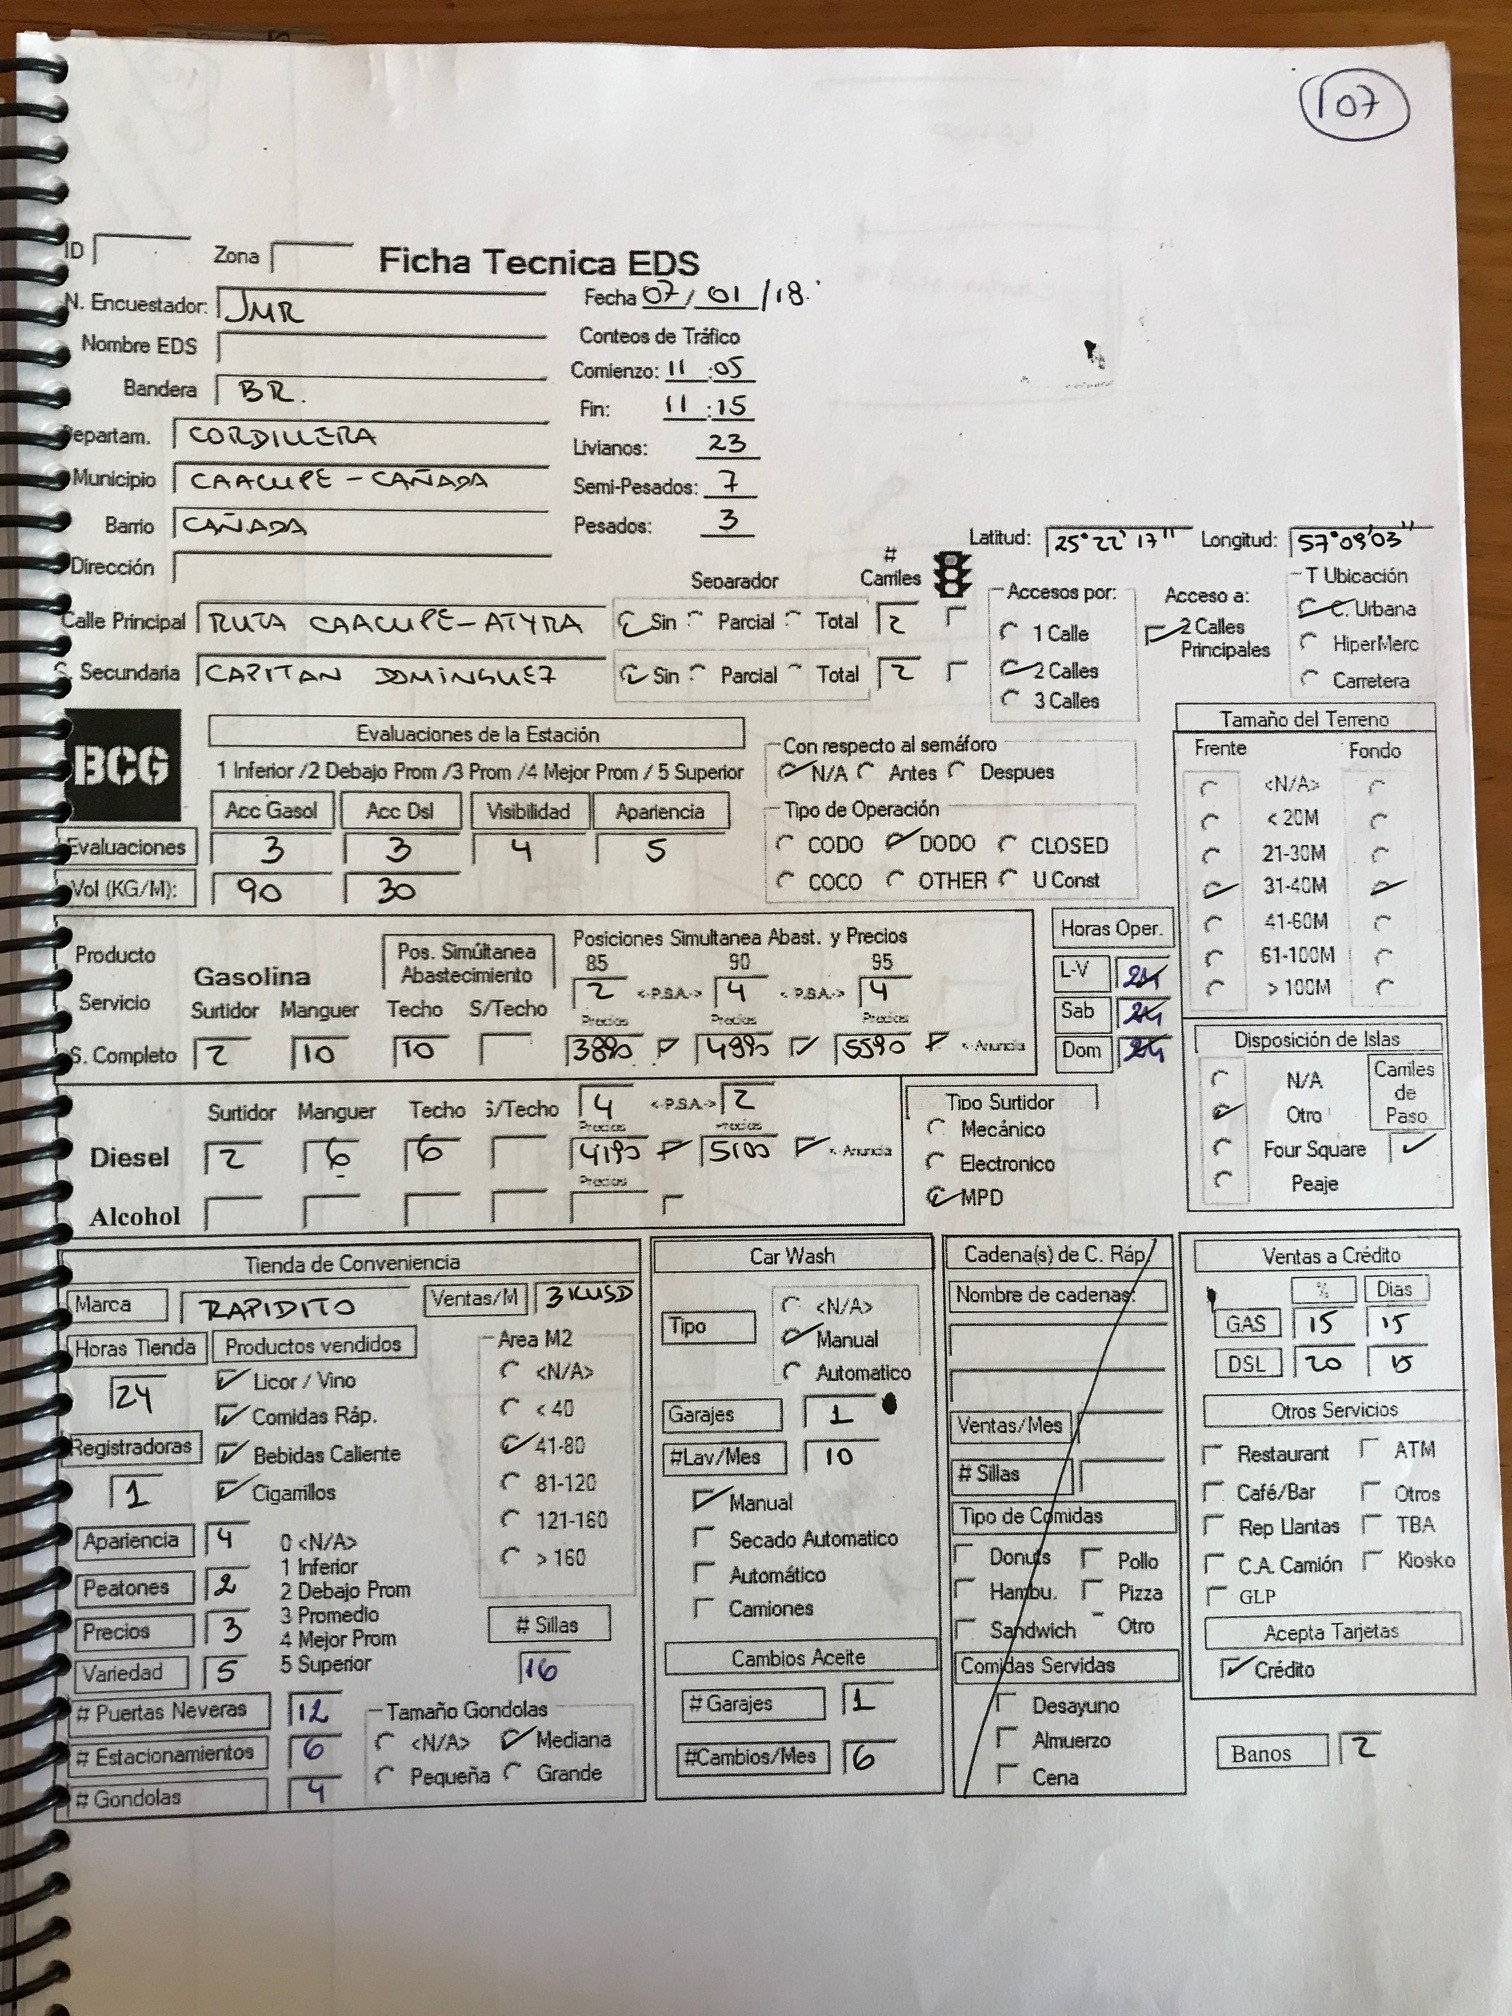 107
ID Zona Ficha Tecnica EDS
N. Encuestador: JMR Fecha 07/01/18
Nombre EDS Conteos de Tráfico
Bandera BR. Comienzo: 11:05
Fin: 11:15
Departam. CORDILLERA Livianos: 23
Municipio CAACUPE - CAÑADA Semi-Pesados: 7
Barrio CAÑADA Pesados: 3
Latitud: 25°22'17" Longitud: 57°09'03"
Dirección
Separador # Carriles Accesos por: Acceso a: T Ubicación
Calle Principal RUTA CAACUPE-ATYRA Sin Parcial Total 2 1 Calle 2 Calles Principales C. Urbana
HiperMerc
S. Secundaria CAPITAN DOMINGUEZ Sin Parcial Total 2 2 Calles Carretera
3 Calles
BCG
Evaluaciones de la Estación
1 Inferior /2 Debajo Prom /3 Prom /4 Mejor Prom / 5 Superior
Acc Gasol Acc Dsl Visibilidad Apariencia
Evaluaciones 3 3 4 5
Vol (KG/M): 90 30
Con respecto al semáforo
N/A Antes Despues
Tipo de Operación
CODO DODO CLOSED
COCO OTHER U Const
Tamaño del Terreno
Frente Fondo
<N/A>
< 20M
21-30M
31-40M
41-60M
61-100M
> 100M
Producto Gasolina Pos. Simúltanea Abastecimiento Posiciones Simultanea Abast. y Precios
85 90 95
2 <-P.S.A.-> 4 <-P.S.A.-> 4
Servicio Surtidor Manguer Techo S/Techo Precios Precios Precios
S. Completo 2 10 10 3890 4990 5590 <-Anuncia
Horas Oper.
L-V 24
Sab 24
Dom 24
Surtidor Manguer Techo S/Techo 4 <-P.S.A.-> 2
Precios Precios
Diesel 2 6 6 4190 5100 <-Anuncia
Precios
Alcohol
Tipo Surtidor
Mecánico
Electronico
MPD
Disposición de Islas
N/A Carriles de Paso
Otro
Four Square
Peaje
Tienda de Conveniencia
Marca RAPIDITO Ventas/M 3KUSD
Horas Tienda Productos vendidos Area M2
24 Licor / Vino <N/A>
Comidas Ráp. < 40
Registradoras Bebidas Caliente 41-80
1 Cigarrillos 81-120
121-160
> 160
Apariencia 4 0 <N/A>
1 Inferior
Peatones 2 2 Debajo Prom
3 Promedio
Precios 3 4 Mejor Prom
Variedad 5 5 Superior
# Sillas
16
# Puertas Neveras 12 Tamaño Gondolas
# Estacionamientos 6 <N/A> Mediana
# Gondolas 4 Pequeña Grande
Car Wash
Tipo <N/A>
Manual
Automatico
Garajes 1
#Lav/Mes 10
Manual
Secado Automatico
Automático
Camiones
Cambios Aceite
# Garajes 1
#Cambios/Mes 6
Cadena(s) de C. Ráp
Nombre de cadenas:
Ventas/Mes
# Sillas
Tipo de Comidas
Donuts Pollo
Hambu. Pizza
Sandwich Otro
Comidas Servidas
Desayuno
Almuerzo
Cena
Ventas a Crédito
% Dias
GAS 15 15
DSL 20 15
Otros Servicios
Restaurant ATM
Café/Bar Otros
Rep Llantas TBA
C.A. Camión Kiosko
GLP
Acepta Tarjetas
Crédito
Banos 2